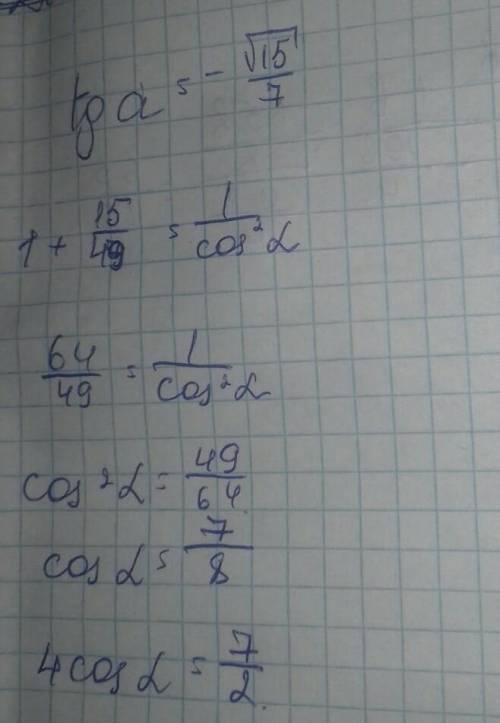 tg α = - √15/7
1 + 15/49 = 1/cos² α
64/49 = 1/cos² α
cos² α = 49/64
cos α = 7/8
4 cos α = 7/2.